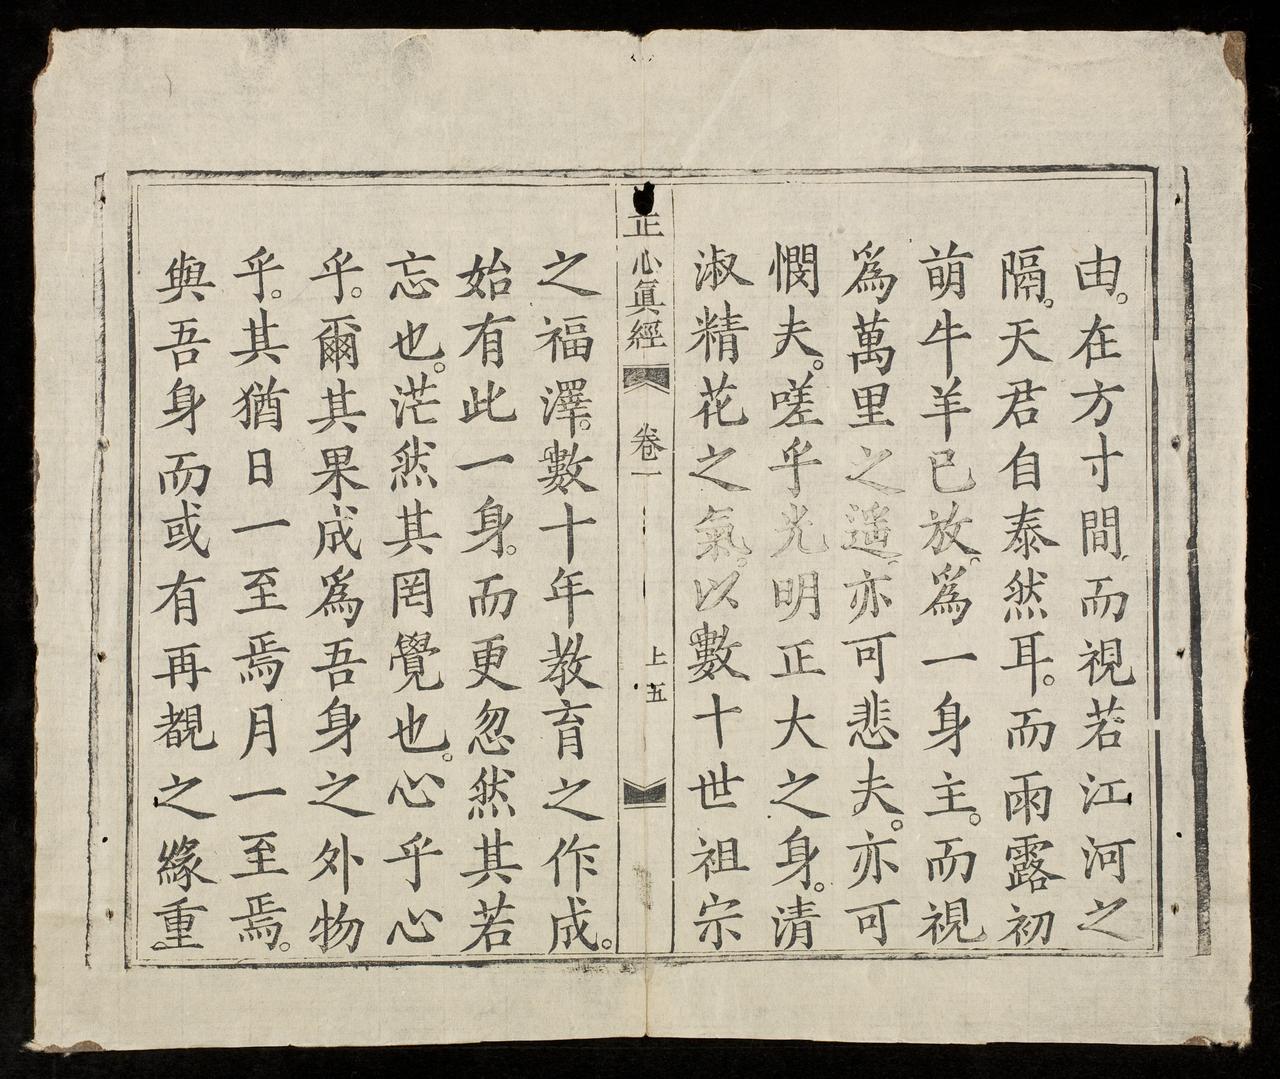 由。在方寸間而視若江河之
隔。天君自泰然耳。而雨露初
萌牛羊已放。爲一身主。而視
爲萬里之遥。亦可悲夫。亦可
憫夫。嗟乎光明正大之身。清
淑精花之氣。以數十世祖宗
正心眞經 卷一 上五
之福澤。數十年教育之作成。
始有此一身。而更忽然其若
忘也。茫然其罔覺也。心乎心
乎。爾其果成爲吾身之外物
乎。其猶日一至焉月一至焉。
與吾身而或有再覩之緣重